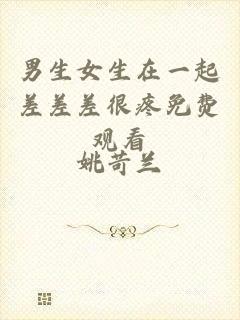 男生女生在一起
差差差很疼免费
观看
姚苛兰